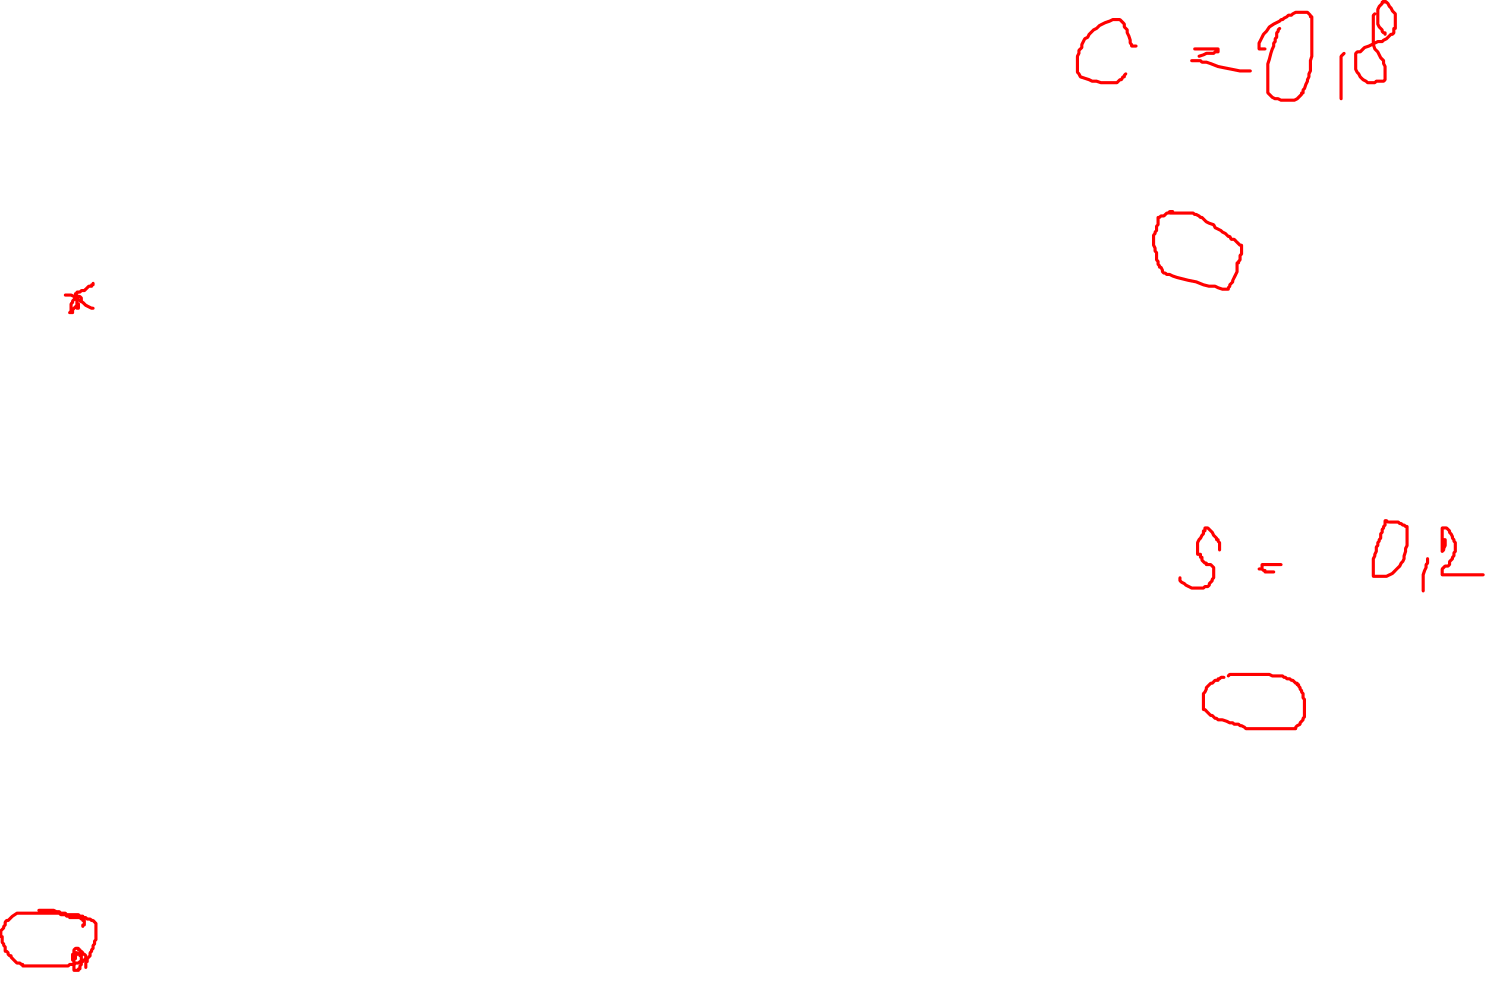 C = 0,8
S = 0,2